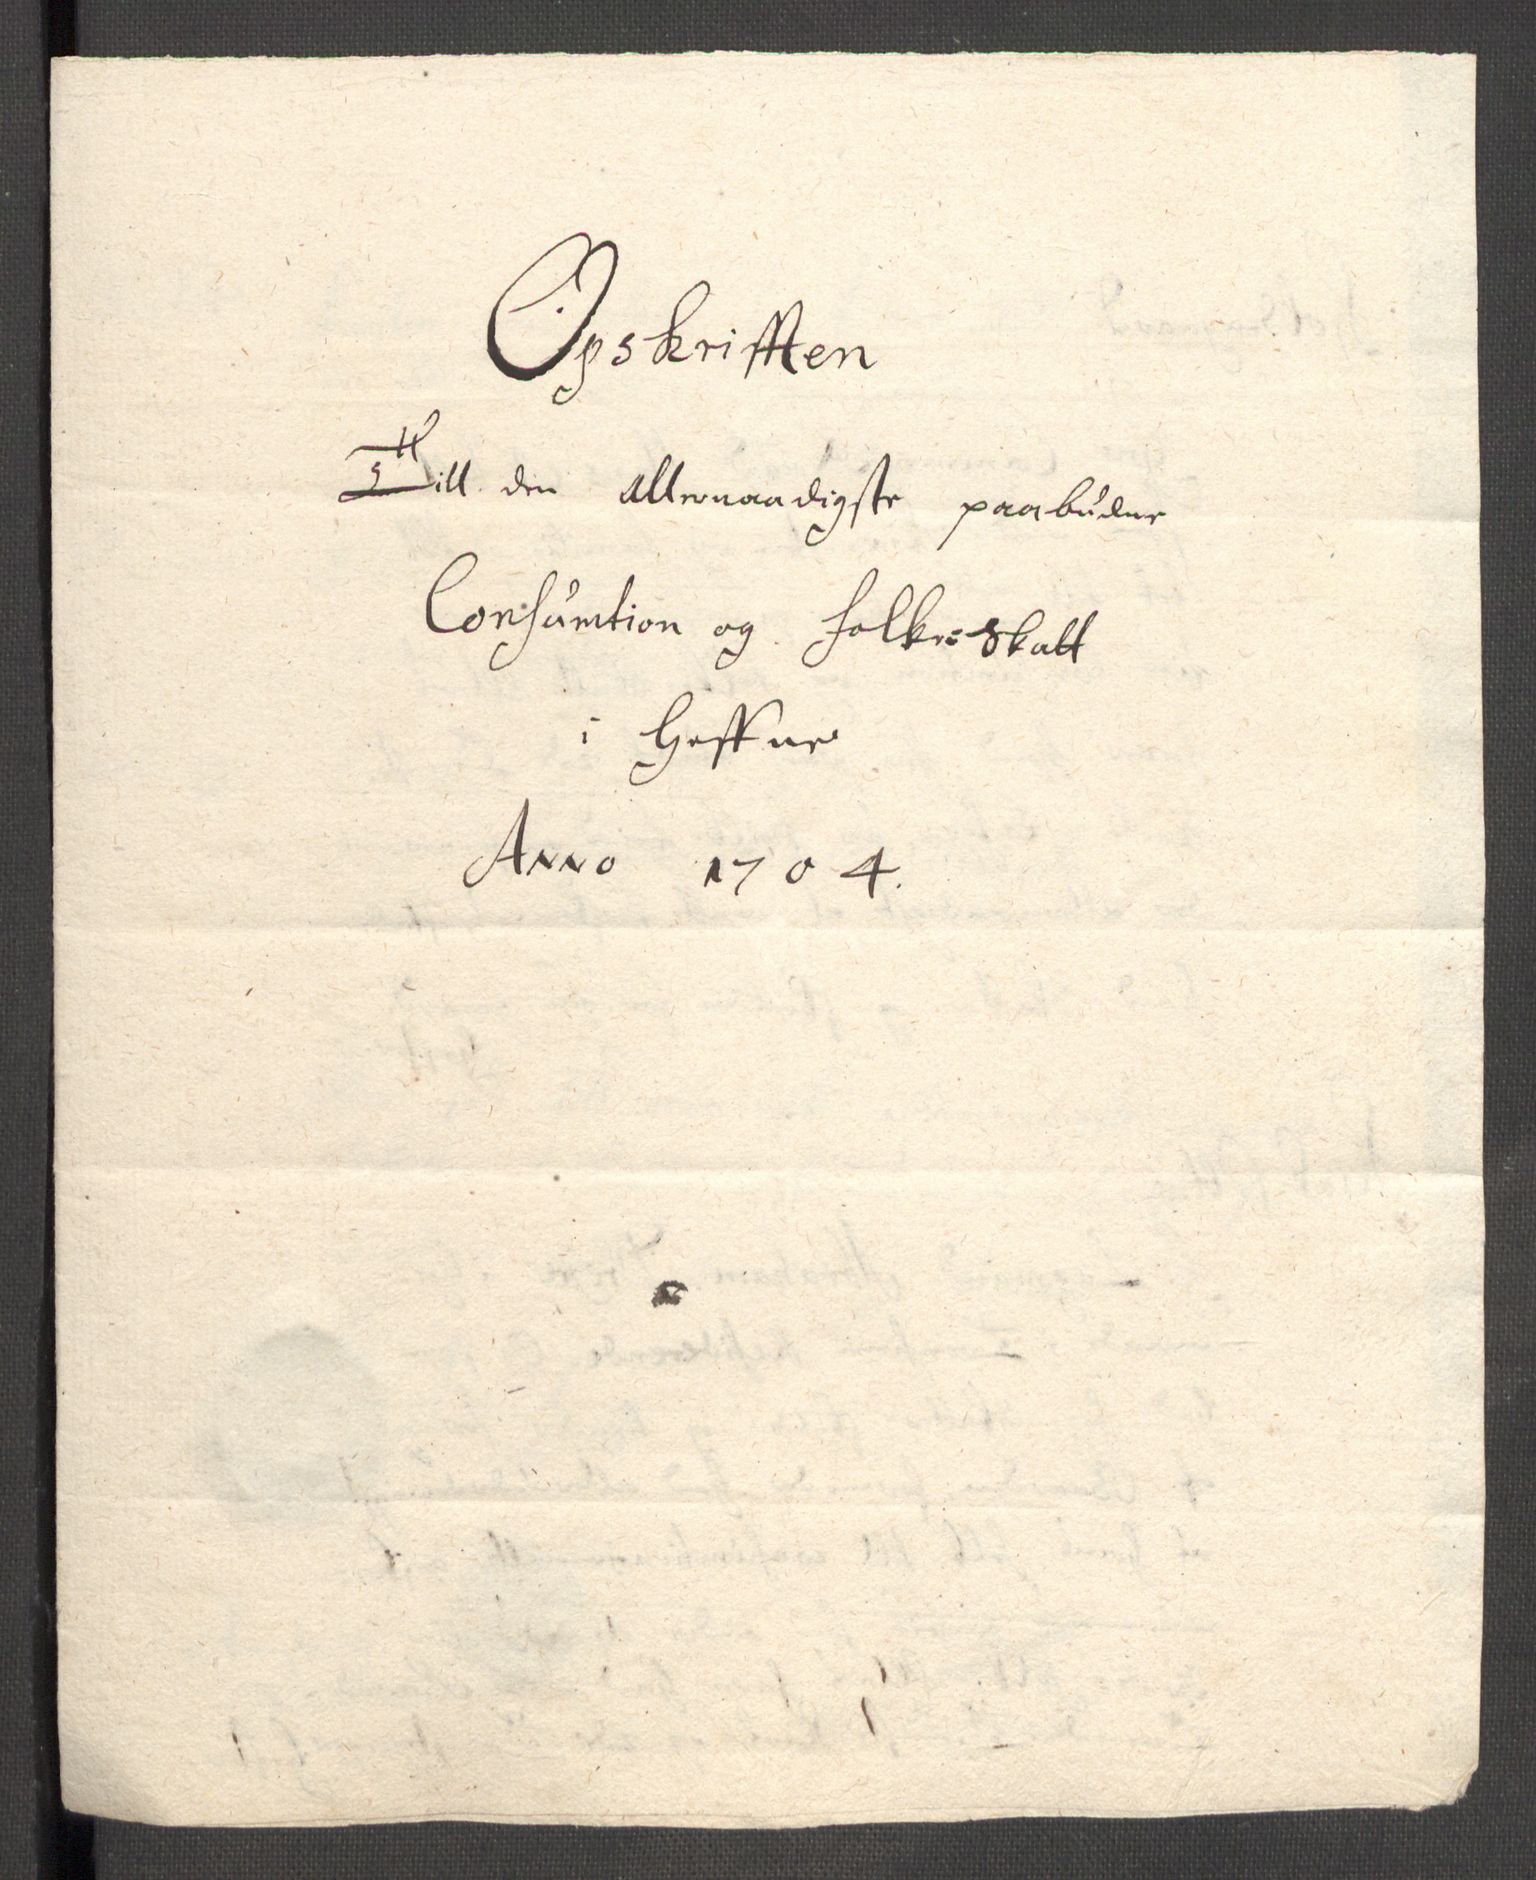 Opskrifften
Till den allernaadigste paabudne
Consumtion og folke-skatt
i Heffne
Anno 1704.